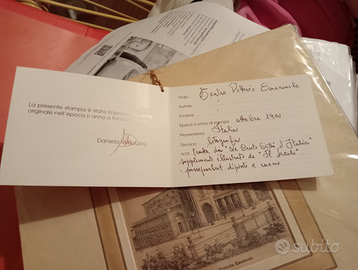 La presente stampa è stata impressa
originale nell'epoca e anno a fianco
Daniela
Titolo Teatro Vittorio Emanuele
Autore "
Incisore "
Epoca e anno di stampa ottobre 1901
Provenienza Italia
Tecnica litografia
Note Tratta da "Le Cento Città d'Italia"
supplemento illustrato de "Il Secolo"
passepartout dipinto a mano
Emanuele
subito